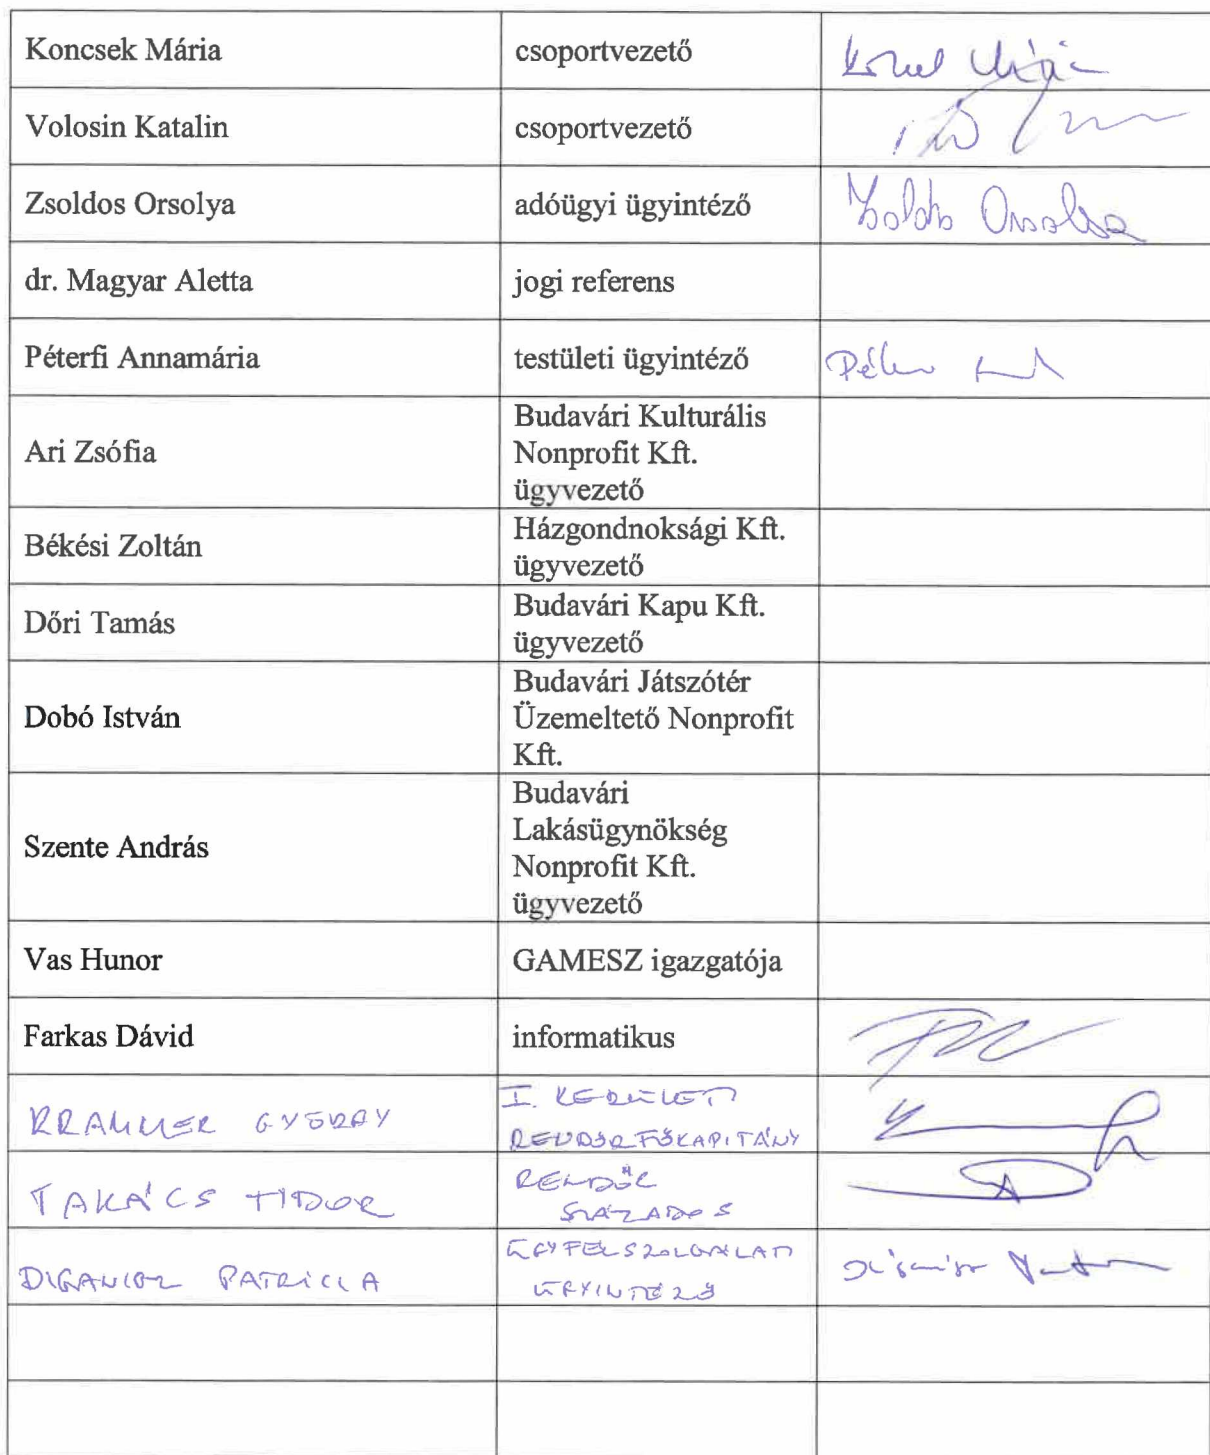 Koncsek Mária csoportvezető
Volosin Katalin csoportvezető
Zsoldos Orsolya adóügyi ügyintéző Zsoldos Orsolya
dr. Magyar Aletta jogi referens
Péterfi Annamária testületi ügyintéző
Ari Zsófia
Budavári Kulturális
Nonprofit Kft.
ügyvezető
Békési Zoltán
Házgondnoksági Kft.
ügyvezető
Dőri Tamás
Budavári Kapu Kft.
ügyvezető
Dobó István
Budavári Játszótér
Üzemeltető Nonprofit
Kft.
Szente András
Budavári
Lakásügynökség
Nonprofit Kft.
ügyvezető
Vas Hunor GAMESZ igazgatója
Farkas Dávid informatikus
KRAMMER GYÖRGY
I. KERÜLETI
RENDŐRFŐKAPITÁNY
TAKÁCS TIBOR
RENDŐR
SZÁZADOS
PATRICIA
ÜGYFÉLSZOLGÁLATI
ÜGYINTÉZŐ